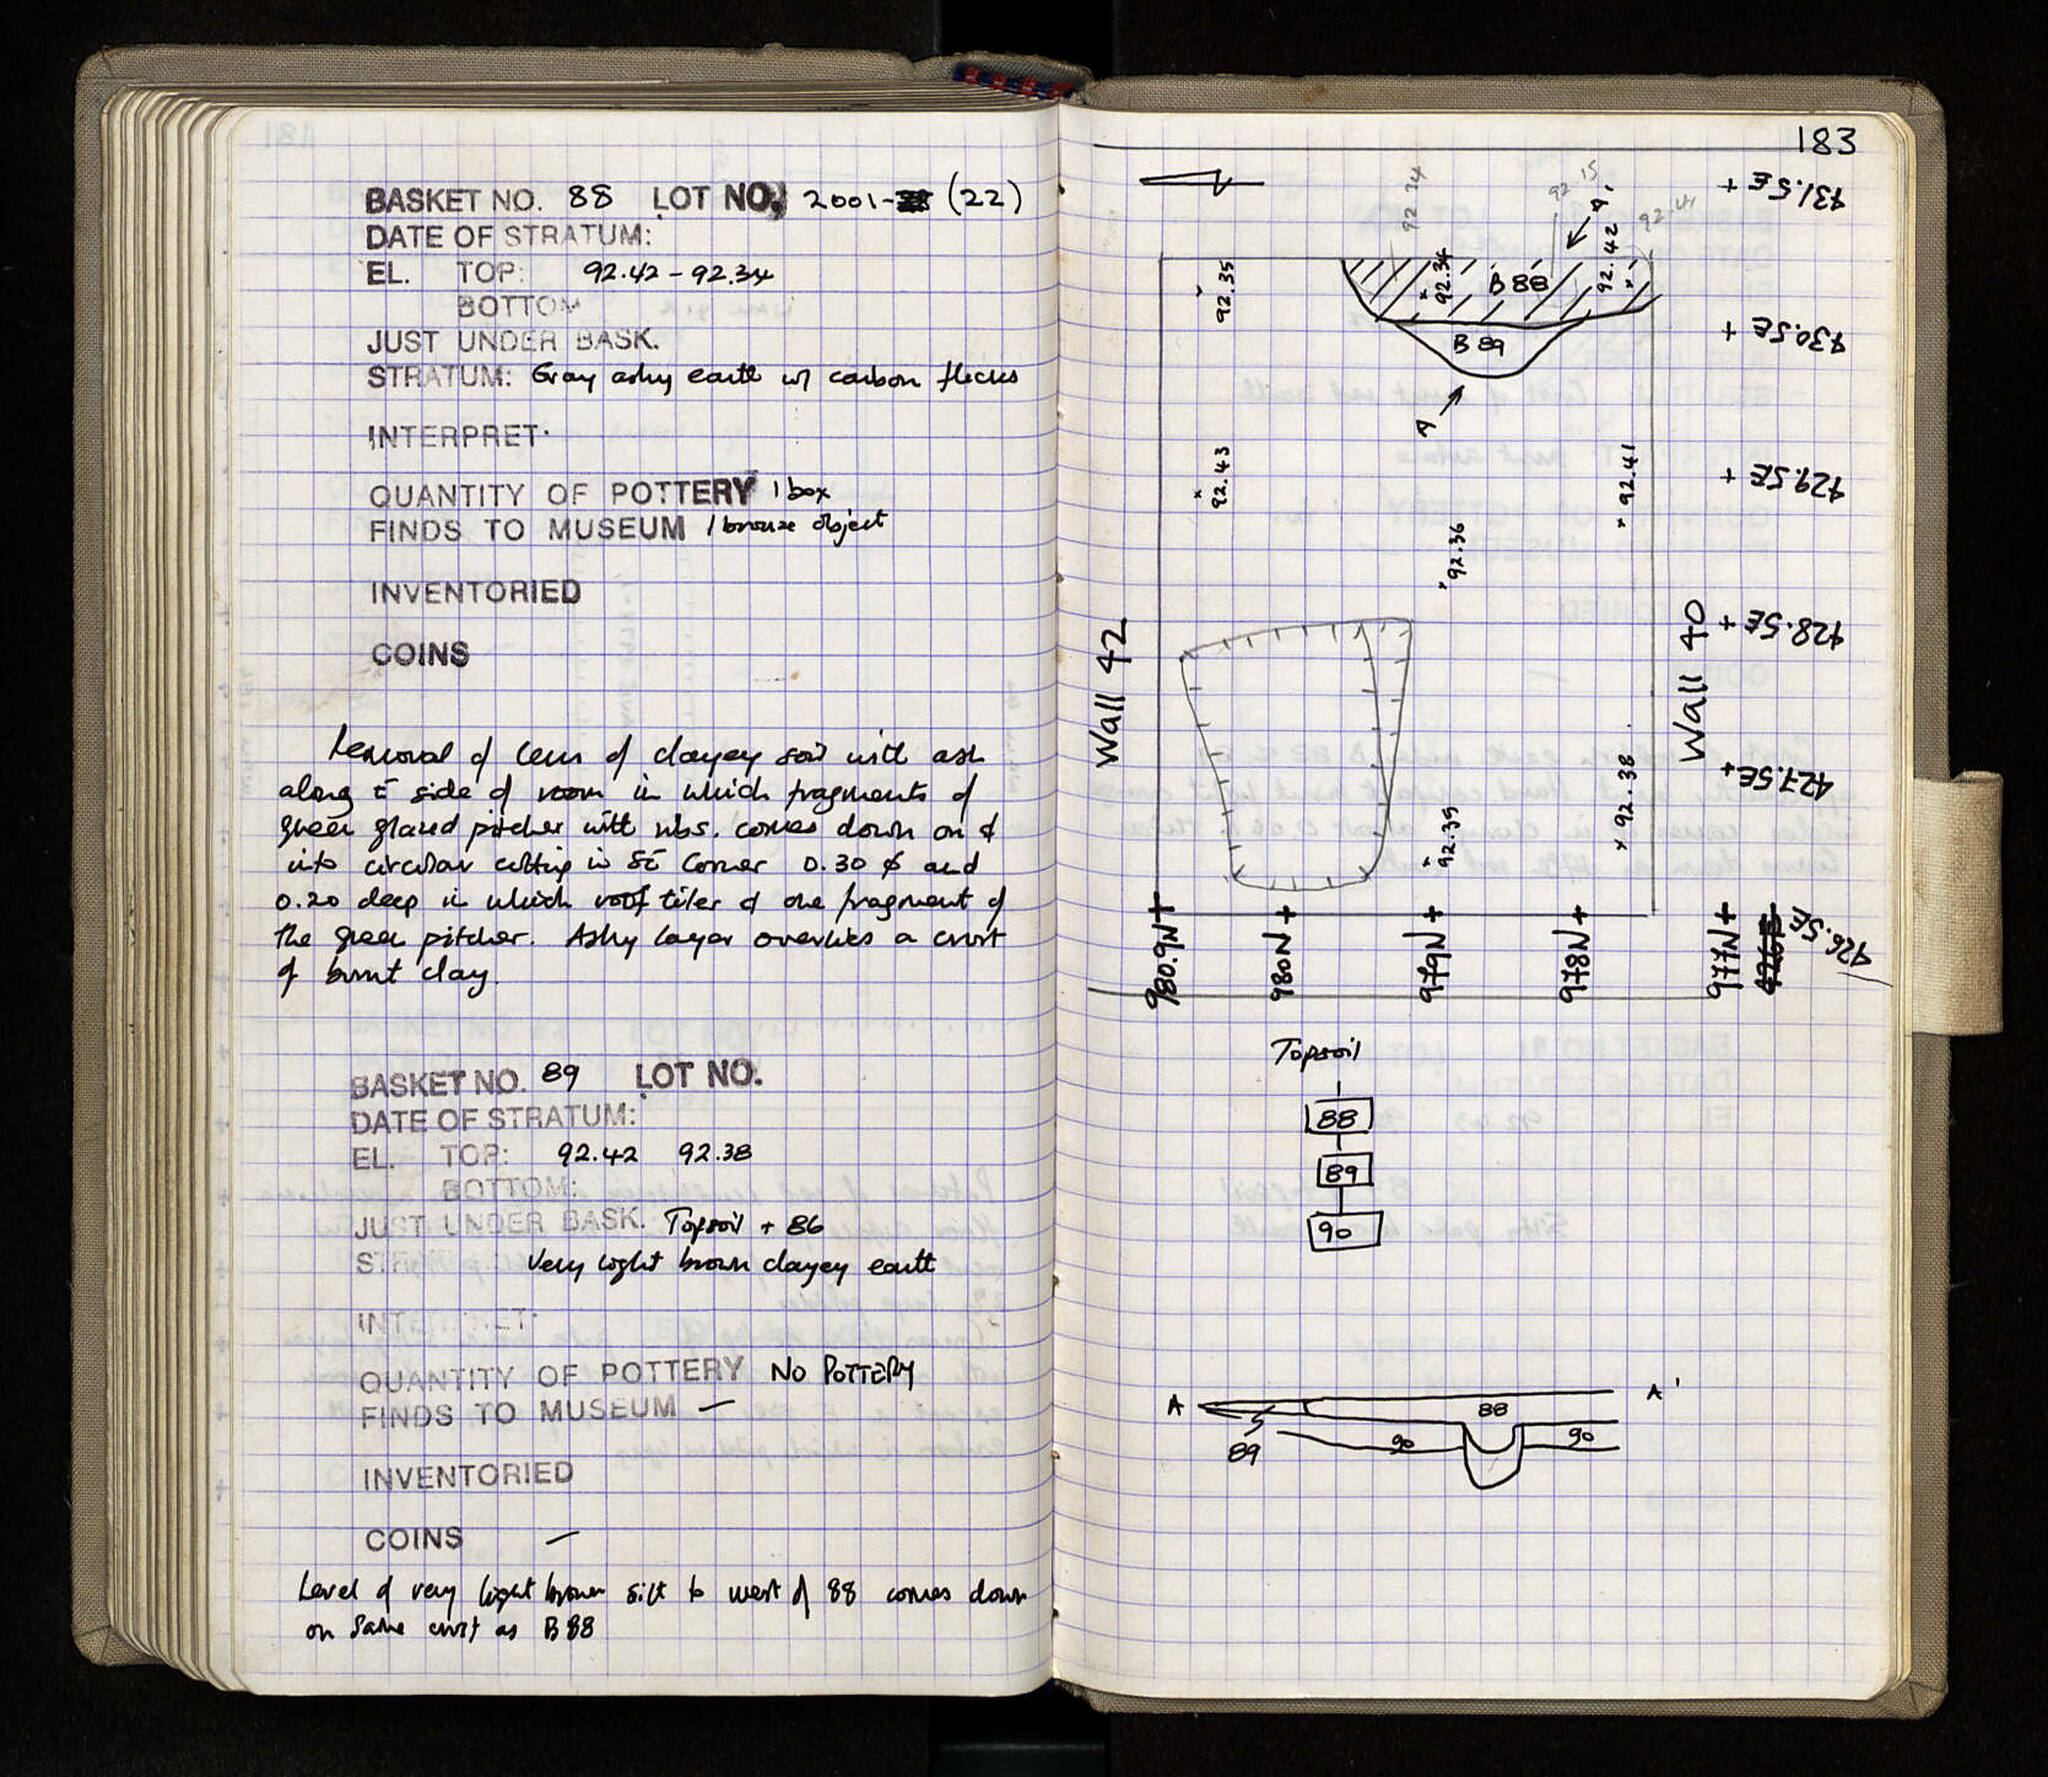 BASKET NO. 88 LOT NO. 2001- (22)
DATE OF STRATUM:
EL. TOP: 92.42 - 92.34
BOTTOM
JUST UNDER BASK.
STRATUM: Gray ashy earth w/ carbon flecks
INTERPRET:
QUANTITY OF POTTERY 1 box
FINDS TO MUSEUM 1 bronze object
INVENTORIED
COINS
Removal of lens of clayey soil with ash
along E side of room in which fragments of
green glazed pitcher with ribs. comes down on &
into circular cutting in SE Corner 0.30 ϕ and
0.20 deep in which roof tiles & one fragment of
the green pitcher. Ashy layer overlies a crust
of burnt clay.
BASKET NO. 89 LOT NO.
DATE OF STRATUM:
EL. TOP: 92.42 92.38
BOTTOM:
JUST UNDER BASK. Topsoil + 86
STRATUM: Very light brown clayey earth
INTERPRET:
QUANTITY OF POTTERY NO POTTERY
FINDS TO MUSEUM —
INVENTORIED
COINS —
Level of very light brown silt to west of 88 comes down
on same crust as B88
183
92.34
92.15
92.41
A'
431.5E +
92.35
92.34
B 88
92.42
430.5E +
B 89
A
92.43
92.36
92.41
429.5E +
Wall 42
Wall 40
428.5E +
92.39
92.38
427.5E +
426.5E
980.9N +
980N +
979N +
978N +
977N +
Topsoil
88
89
90
A
A'
88
89
90
90